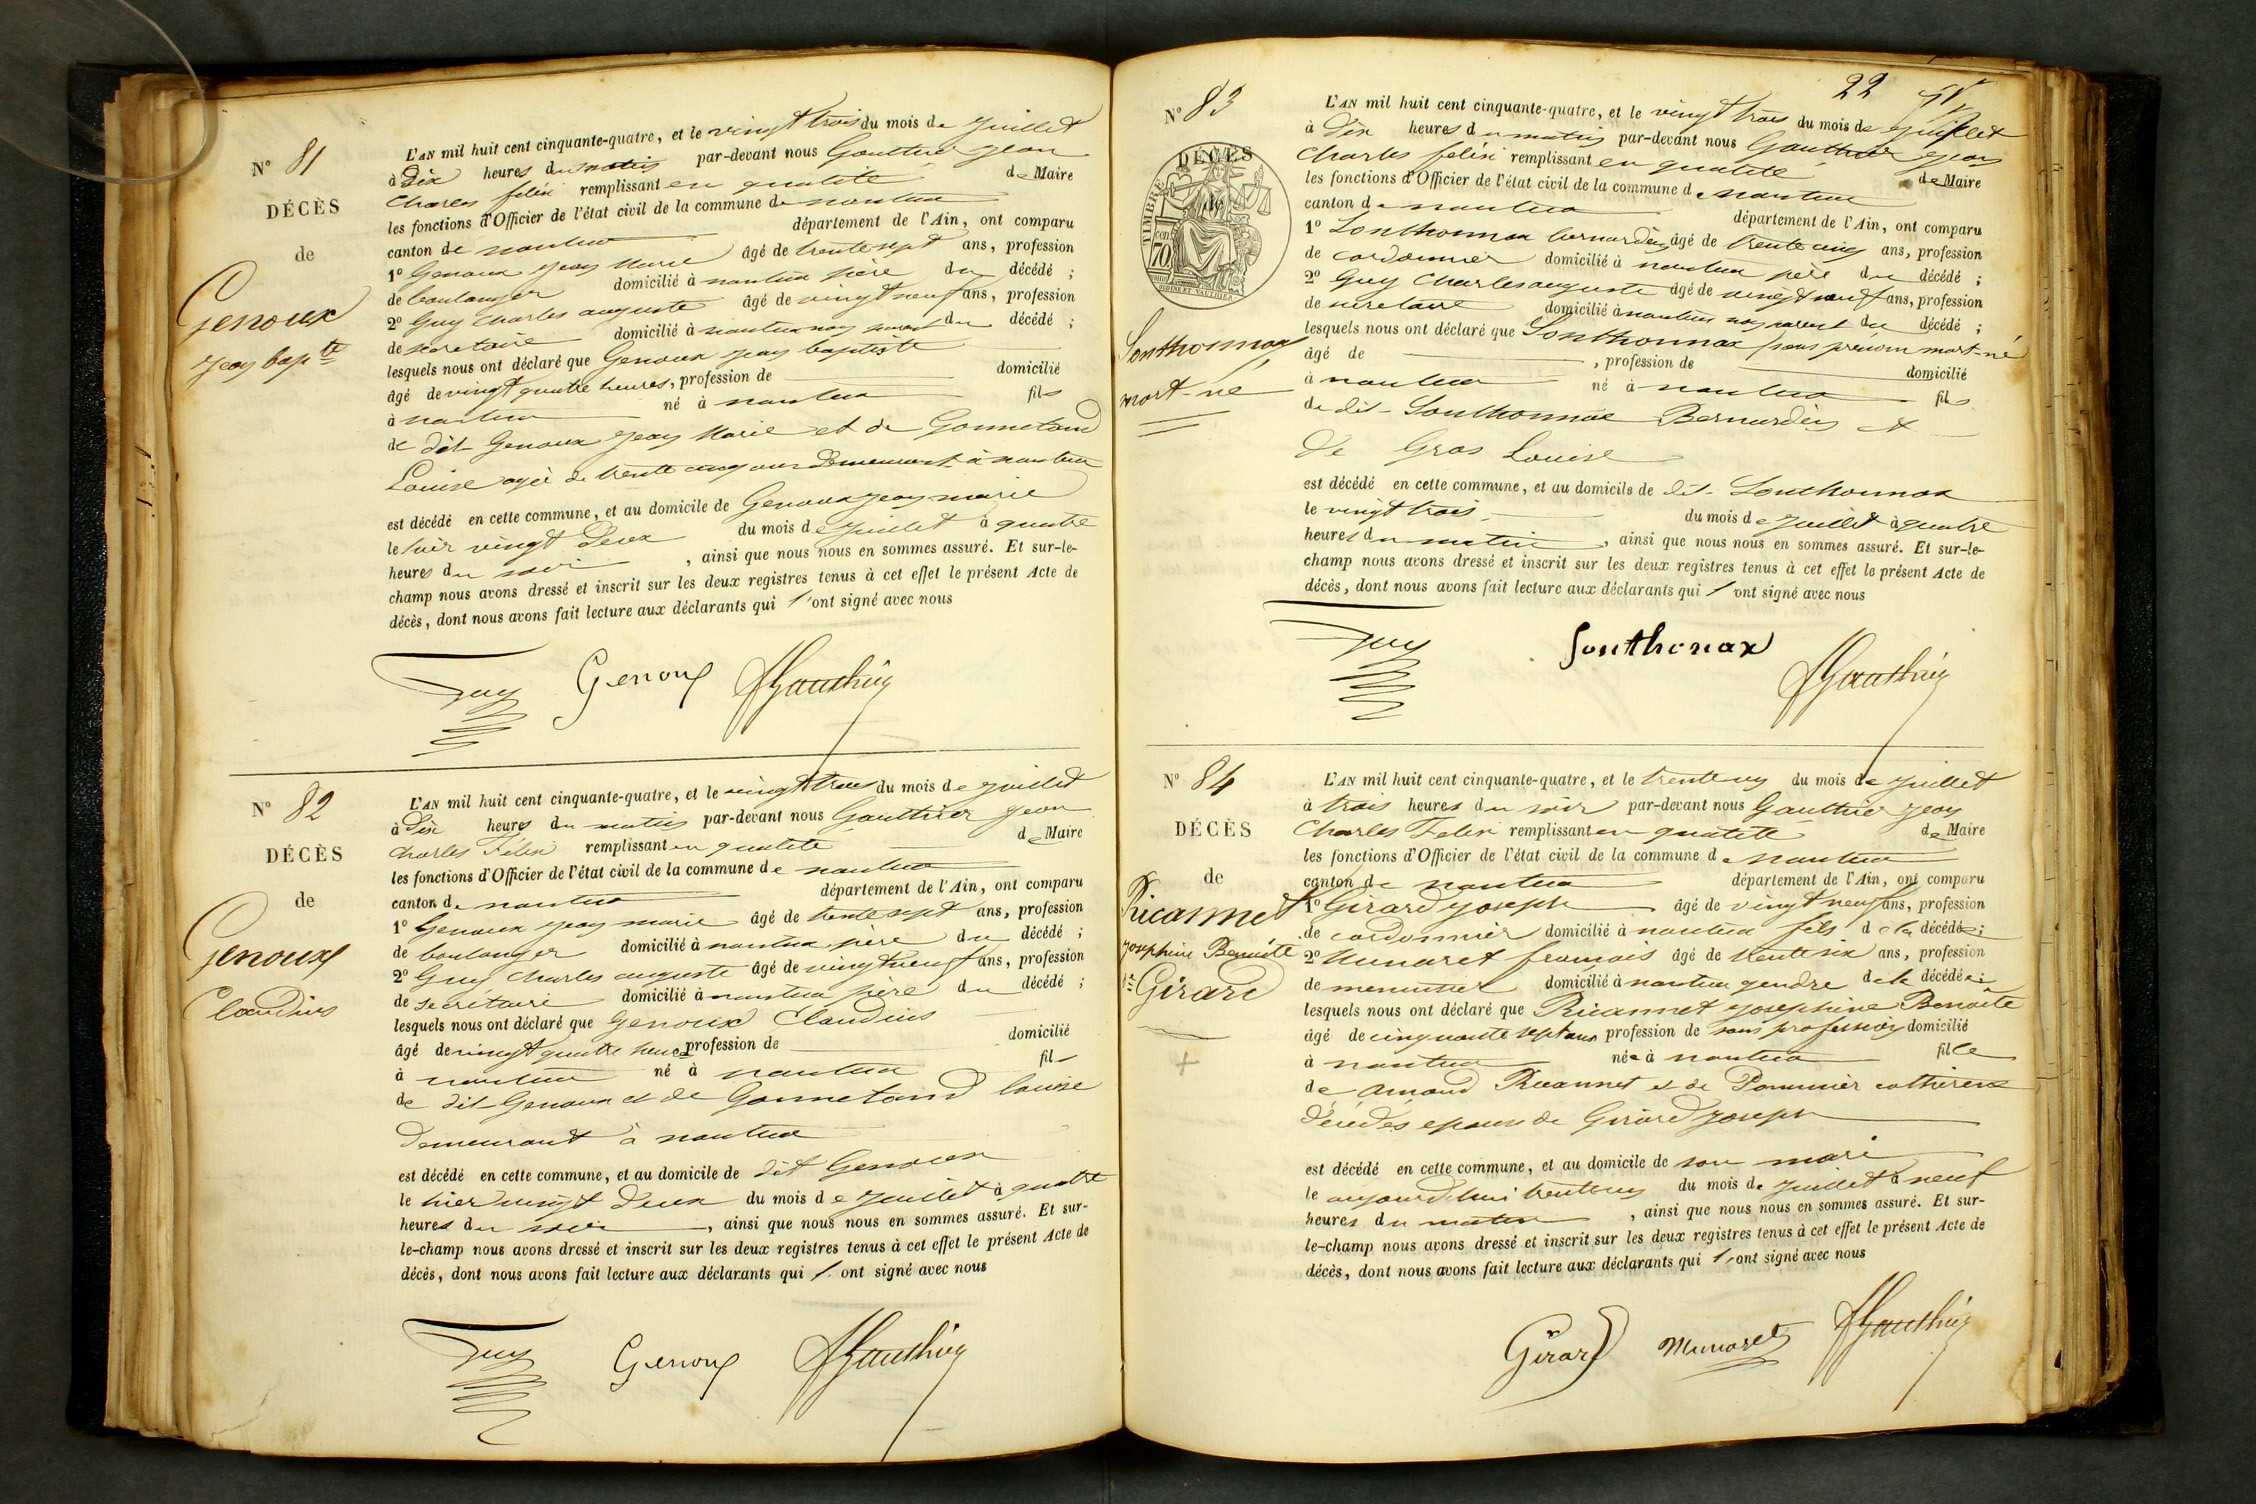 N° 81
DÉCÈS
de
Genoux
Jean bapte
L'AN mil huit cent cinquante-quatre, et le vingt trois du mois de Juillet
à Dix heures du matin par-devant nous Gauthier Jean
Charles félix remplissant en qualité de Maire
les fonctions d'Officier de l'état civil de la commune de nantua
canton de nantua département de l'Ain, ont comparu
1° Genoux Jean Marie âgé de trente sept ans, profession
de boulanger domicilié à nantua père du décédé ;
2° Guy Charles auguste âgé de vingt neuf ans, profession
de secretaire domicilié à nantua non parent du décédé ;
lesquels nous ont déclaré que Genoux Jean baptiste
âgé de vingt quatre heures, profession de domicilié
à nantua né à nantua fils
de dit Genoux Jean Marie et de Gonnetand
Louise agée de trente cinq ans Demeurant à nantua
est décédé en cette commune, et au domicile de Genoux Jean marie
le hier vingt Deux du mois de Juillet à quatre
heures du soir , ainsi que nous nous en sommes assuré. Et sur-le-
champ nous avons dressé et inscrit sur les deux registres tenus à cet effet le présent Acte de
décès, dont nous avons fait lecture aux déclarants qui l'ont signé avec nous
Guy Genoux Gauthier
N° 82
DÉCÈS
de
Genoux
Claudius
L'AN mil huit cent cinquante-quatre, et le vingt trois du mois de Juillet
à Dix heures du matin par-devant nous Gauthier Jean
Charles Félix remplissant en qualité de Maire
les fonctions d'Officier de l'état civil de la commune de nantua
canton de nantua département de l'Ain, ont comparu
1° Genoux Jean marie âgé de trente sept ans, profession
de boulanger domicilié à nantua père du décédé ;
2° Guy Charles auguste âgé de vingt neuf ans, profession
de secrétaire domicilié à nantua père du décédé ;
lesquels nous ont déclaré que Genoux Claudius
âgé de vingt quatre heures profession de domicilié
à nantua né à nantua fil
de dit Genoux et de Gonnetand louise
Demeurant à nantua
est décédé en cette commune, et au domicile de dit Genoux
le hier vingt Deux du mois de Juillet à quatre
heures du soir , ainsi que nous nous en sommes assuré. Et sur-
le-champ nous avons dressé et inscrit sur les deux registres tenus à cet effet le présent Acte de
décès, dont nous avons fait lecture aux déclarants qui l'ont signé avec nous
Guy Genoux Gauthier
22
N° 83
DÉCÈS
TIMBRE
70
Sonthonnax
mort-né
L'AN mil huit cent cinquante-quatre, et le vingt trois du mois de Juillet
à Dix heures du matin par-devant nous Gauthier Jean
Charles félix remplissant en qualité de Maire
les fonctions d'Officier de l'état civil de la commune de nantua
canton de nantua département de l'Ain, ont comparu
1° Sonthonnax bernardin âgé de trente cinq ans, profession
de cordonnier domicilié à nantua père du décédé ;
2° Guy Charles auguste âgé de vingt neuf ans, profession
de secretaire domicilié à nantua non parent du décédé ;
lesquels nous ont déclaré que Sonthonnax sans prénom mort-né
âgé de , profession de domicilié
à nantua né à nantua fils
de dit Sonthonnax Bernardin et
de Gros Louise
est décédé en cette commune, et au domicile de dit Sonthonnax
le vingt trois du mois de Juillet à quatre
heures du matin , ainsi que nous nous en sommes assuré. Et sur-le-
champ nous avons dressé et inscrit sur les deux registres tenus à cet effet le présent Acte de
décès, dont nous avons fait lecture aux déclarants qui l'ont signé avec nous
Guy Sonthonax Gauthier
N° 84
DÉCÈS
de
Ricannet
Josephine Benoite
Girard
L'AN mil huit cent cinquante-quatre, et le trente un du mois de Juillet
à trois heures du soir par-devant nous Gauthier Jean
Charles Felix remplissant en qualité de Maire
les fonctions d'Officier de l'état civil de la commune de Nantua
canton de nantua département de l'Ain, ont comparu
1° Girard Joseph âgé de vingt neuf ans, profession
de cordonnier domicilié à nantua fils de la décédée ;
2° Munaret francois âgé de trente six ans, profession
de menuisier domicilié à nantua gendre de la décédée ;
lesquels nous ont déclaré que Ricannet Josephine Benoite
âgé de cinquante sept ans profession de sans profession domicilié
à nantua née à nantua fille
de amand Ricannet et de Pommier catherine
Décédés epouse de Girard Joseph
est décédé en cette commune, et au domicile de son mari
le aujourd'hui trente un du mois de Juillet à neuf
heures du matin , ainsi que nous nous en sommes assuré. Et sur-
le-champ nous avons dressé et inscrit sur les deux registres tenus à cet effet le présent Acte de
décès, dont nous avons fait lecture aux déclarants qui l'ont signé avec nous
Girard Munaret Gauthier